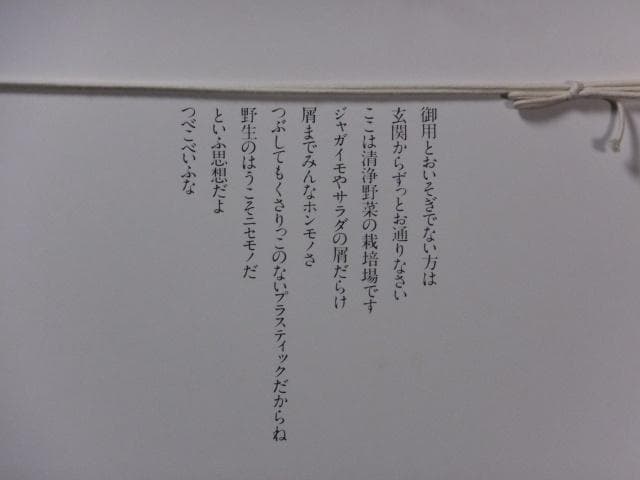 御用とおいそぎでない方は
玄関からずっとお通りなさい
ここは清浄野菜の栽培場です
ジャガイモやサラダの屑だらけ
屑までみんなホンモノさ
つぶしてもくさりっこのないプラスティックだからね
野生のはうこそニセモノだ
といふ思想だよ
つべこべいふな